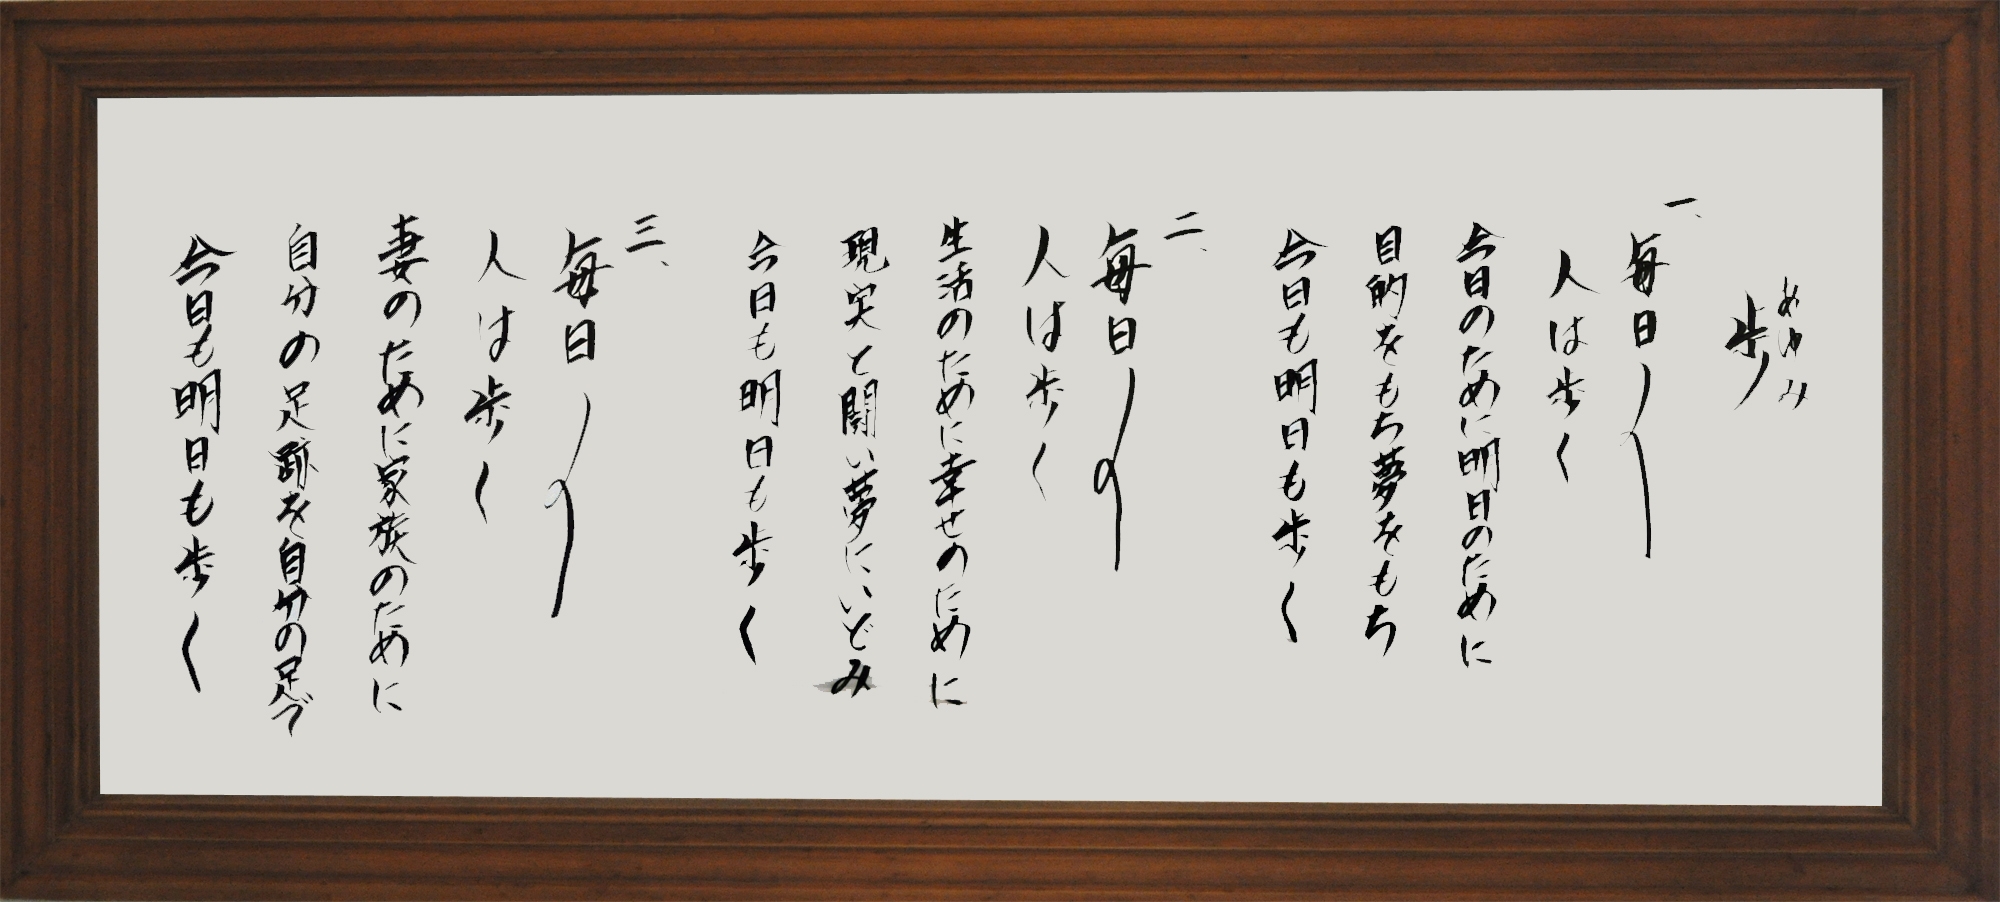 あゆみ
歩
一、
毎日〳〵
人は歩く
今日のために明日のために
目的をもち夢をもち
今日も明日も歩く
二、
毎日〳〵
人は歩く
生活のために幸せのために
現実と闘い夢にいどみ
今日も明日も歩く
三、
毎日〳〵
人は歩く
妻のために家族のために
自分の足跡を自分の足で
今日も明日も歩く